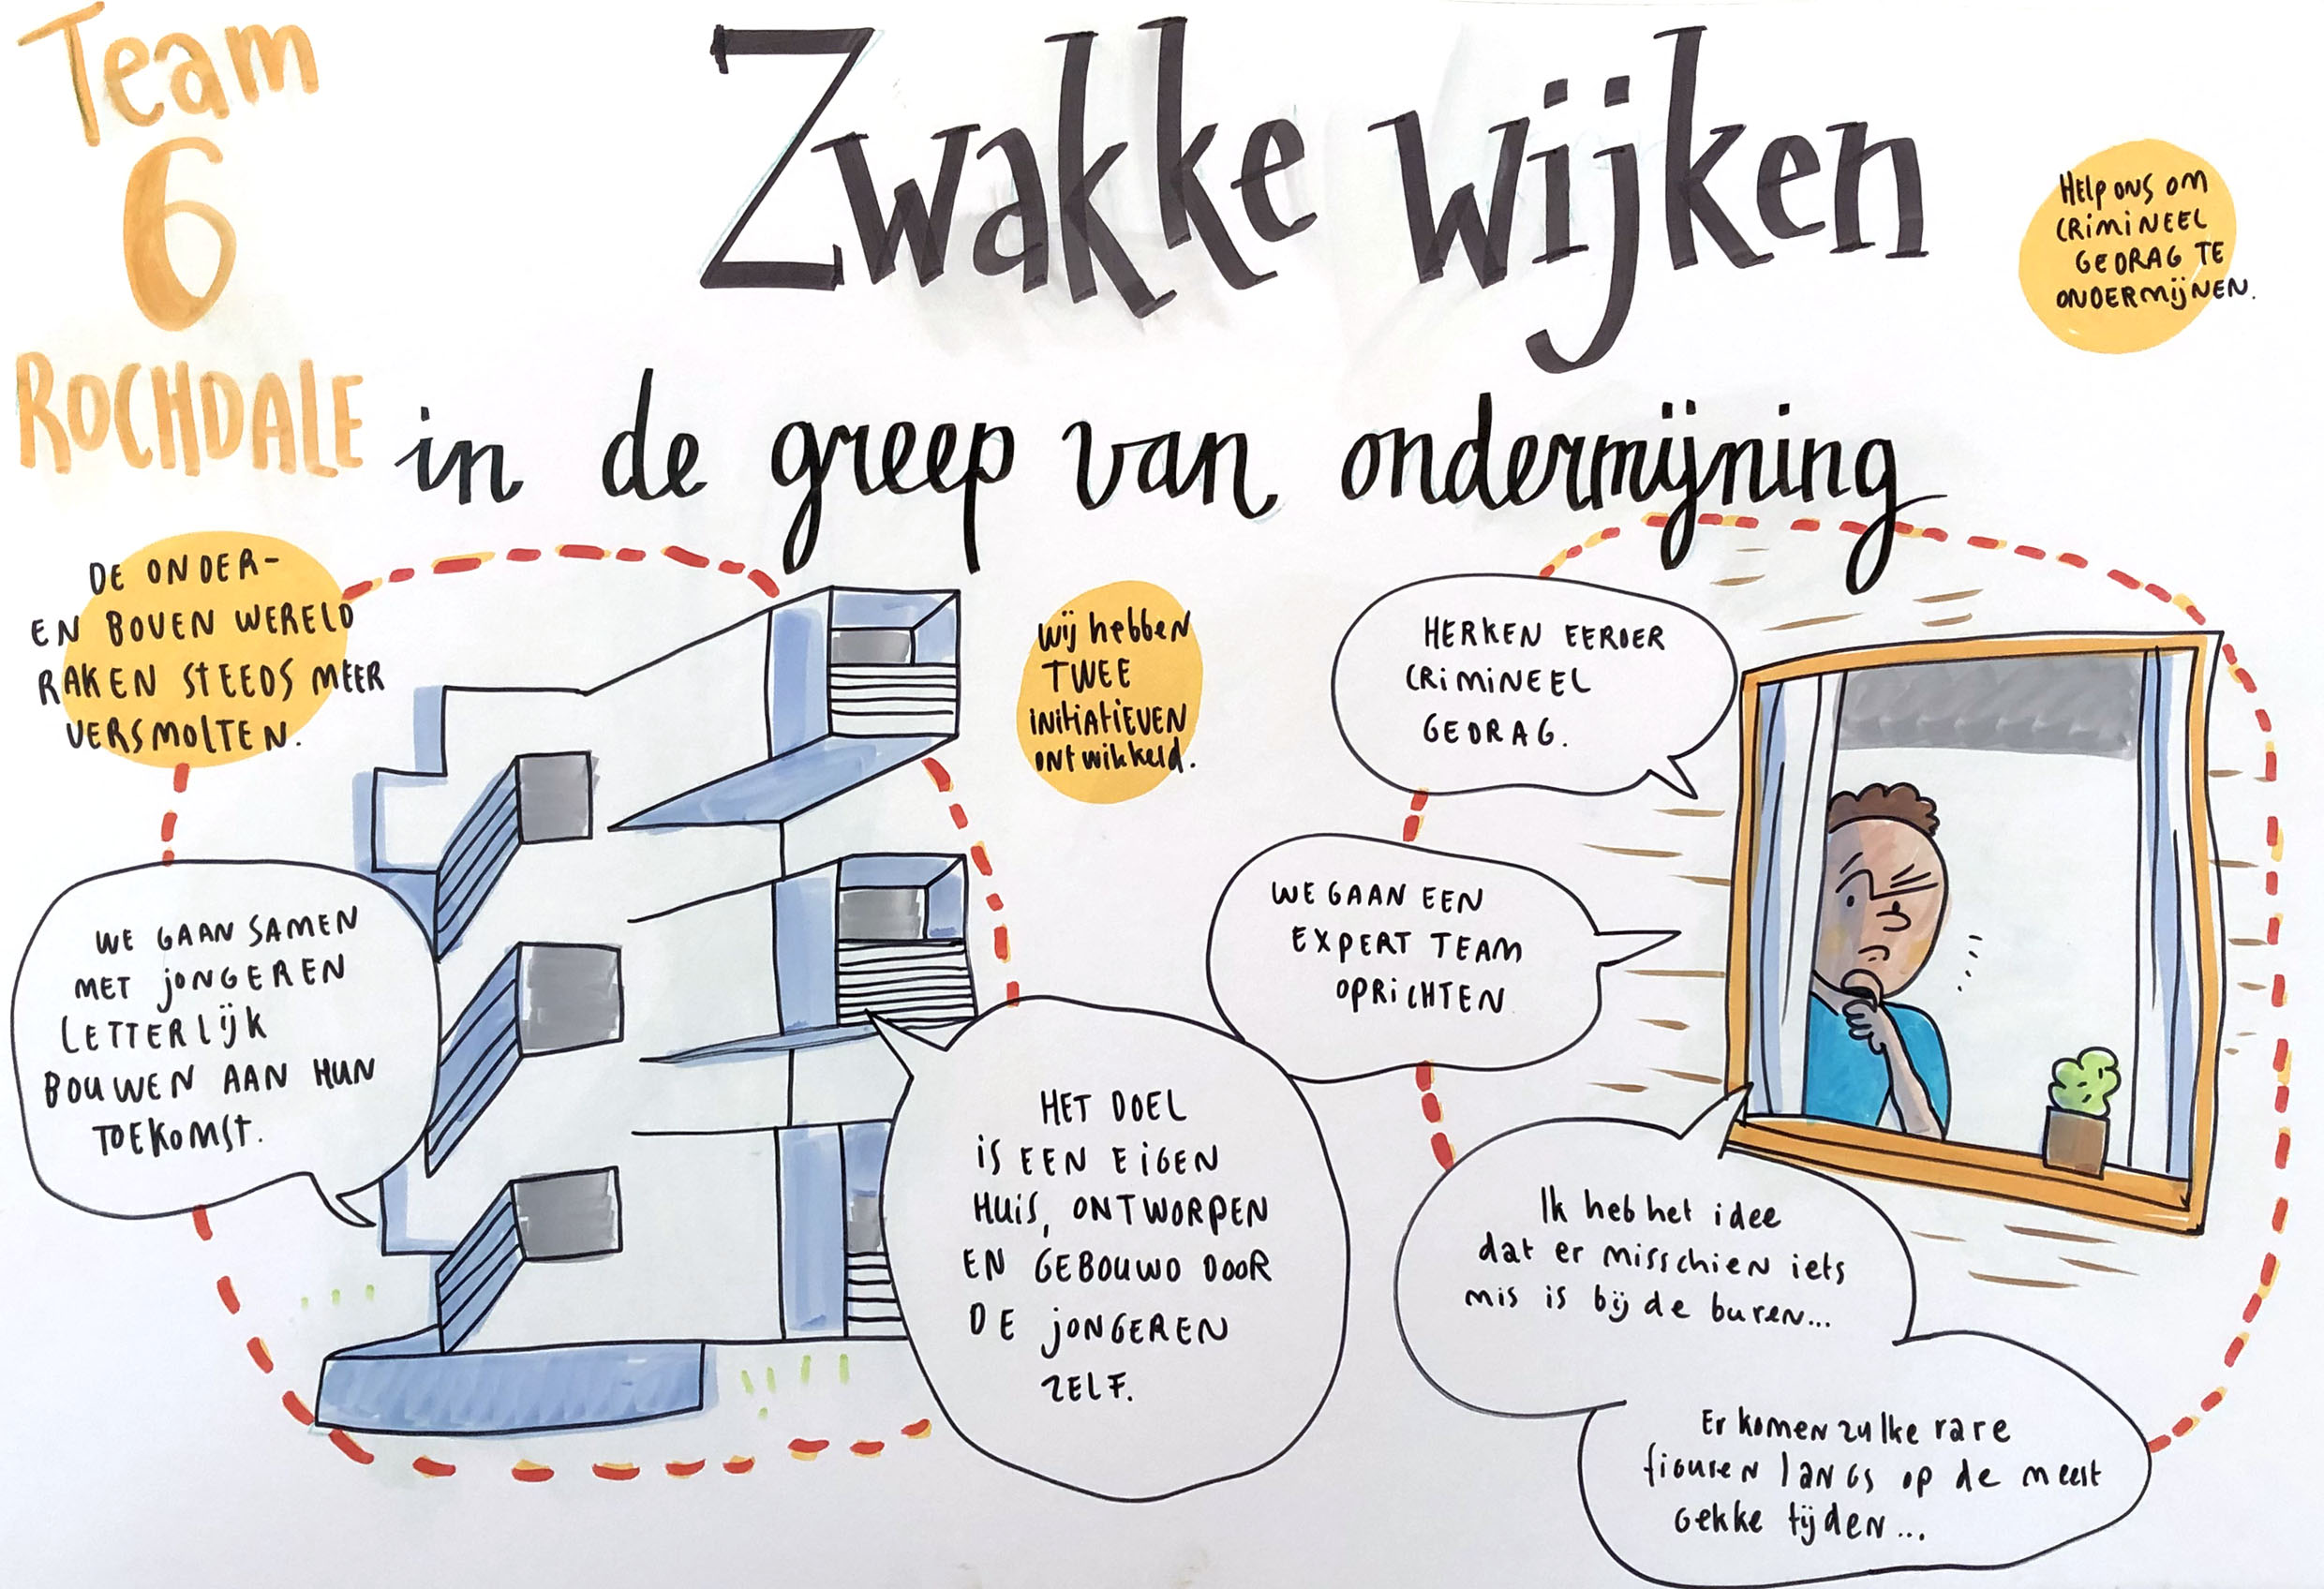 Team
6
ROCHDALE
Zwakke wijken
in de greep van ondermijning
HELP ONS OM
CRIMINEEL
GEDRAG TE
ONDERMIJNEN.
DE ONDER-
EN BOVEN WERELD
RAKEN STEEDS MEER
VERSMOLTEN.
WE GAAN SAMEN
MET JONGEREN
LETTERLIJK
BOUWEN AAN HUN
TOEKOMST.
Wij hebben
TWEE
INITIATIEVEN
ontwikkeld.
HET DOEL
IS EEN EIGEN
HUIS, ONTWORPEN
EN GEBOUWD DOOR
DE JONGEREN
ZELF.
HERKEN EERDER
CRIMINEEL
GEDRAG.
WE GAAN EEN
EXPERT TEAM
OPRICHTEN
Ik heb het idee
dat er misschien iets
mis is bij de buren...
Er komen zulke rare
figuren langs op de meest
gekke tijden...